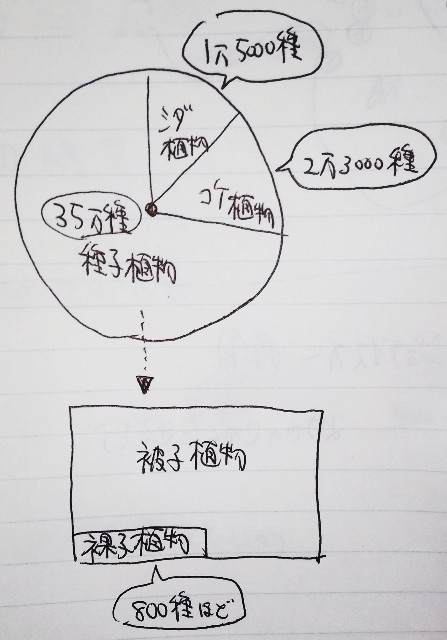 1万5000種
シダ
植物
2万3000種
コケ植物
35万種
種子植物
被子植物
裸子植物
800種ほど